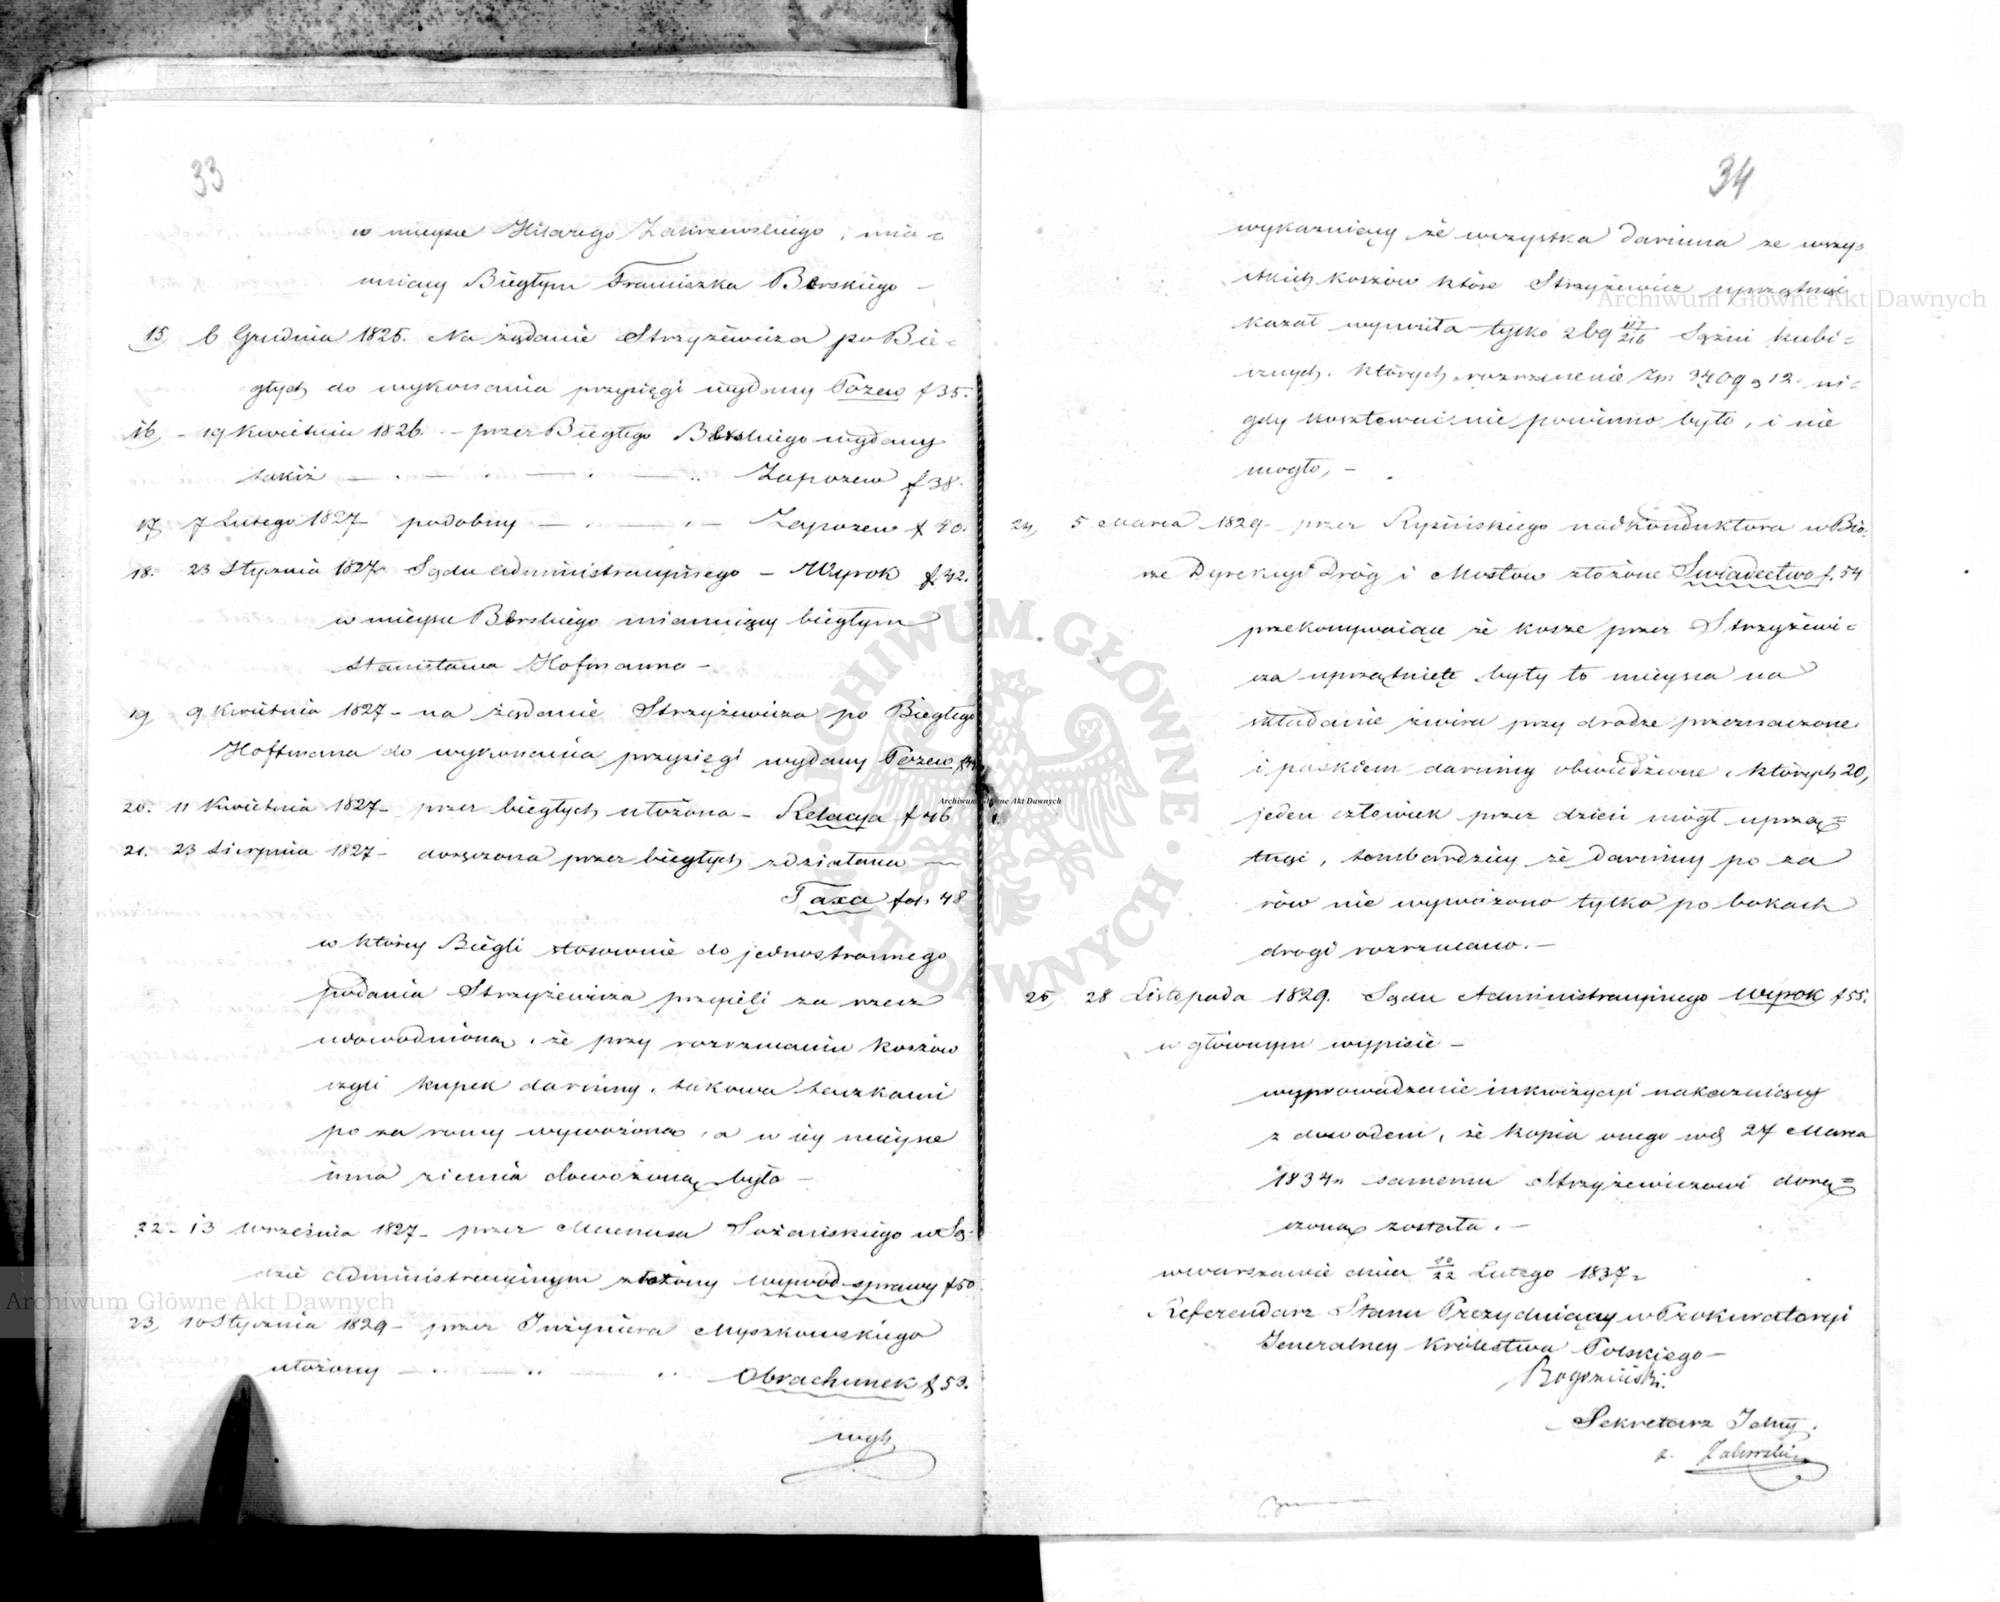 33
w mieysce Hilarego Zakrzewskiego, mia=
nuiący Biegłym Franciszka Berskiego —
15, 6 Grudnia 1825. Na żądanie Strzyżewicza po Bie=
głych do wykonania przysięgi wydany Pozew f 35.
16, — 19 Kwietnia 1826. — przez Biegłego Berskiego wydany
takiż — . — . — .. Zapozew f 38.
17, 7 Lutego 1827 — podobny — . — Zapozew f 40.
18. 23 Stycznia 1827 Sądu Administracyinego — Wyrok f. 42.
w mieysce Berskiego mianuiący biegłym
Stanisława Hofmanna —
19, 9 Kwietnia 1827 — na żądanie Strzyżewicza po Biegłego
Hoffmana do wykonania przysięgi wydany Pozew
20. 11 Kwietnia 1827 — przez biegłych ułożona — Relacya f 46
21. 23 Sierpnia 1827 — doręczona przez biegłych zdziałana —
Taxa fol. 48
w którey Biegli stosownie do jednostronnego
podania Strzyżewicza przyięli za rzecz
udowodnioną, że przy rozrzucaniu koszów
czyli kupek darniny, takowa taczkami
po za rowy wywożoną, a w iey mieysce
inna ziemia dowożoną była —
22 — 13 Września 1827 — przez Mecenasa w Są=
dzie Administracyinym złożony wywód sprawy f 50.
23, 10 Stycznia 1829 — przez Inżyniera Myszkowskiego
ułożony — .. — .. — .. Obrachunek f 53.
wyk
34
wykazuiący że wszystka darnina ze wszy=
stkich koszów które Strzyżewicz uprzątnąć
kazał wynosiła tylko 269 117/216 Sążni kubi=
cznych, których rozrzucenie Złp. 3409 g 12. ni=
gdy kosztować nie powinno było, i nie
mogło, —
24, 5 Marca 1829 — przez Rypińskiego nadkonduktora w Biu=
rze Dyrekcyi Dróg i Mostów złożone Swiadectwo f. 54
przekonywaiące że kosze przez Strzyżewi=
cza uprzątnięte były to mieysca na
składanie żwiru przy drodze przeznaczone
i paskiem darniny obwiedzione, których 20,
jeden człowiek przez dzień mógł uprzą=
tnąć, tembardziey że darniny po za
rów nie wywożono tylko po bokach
drogi rozrzucano. —
25, 28 Listopada 1829. Sądu Administracyinego Wyrok f 55.
w głównym wypisie —
wyprowadzenie inkwizycyi nakazuiący
z dowodem, że kopia onego w d. 27 Marca
1834 r. samemu Strzyżewiczowi dorę=
czoną została. —
w Warszawie dnia 10/22 Lutego 1837 r.
Referendarz Stanu Prezyduiący w Prokuratoryi
Jeneralney Królestwa Polskiego —
Sekretarz Jlny.
Archiwum Główne Akt Dawnych
Archiwum Główne Akt Dawnych
Archiwum Główne Akt Dawnych
ARCHIWUM GŁÓWNE AKT DAWNYCH